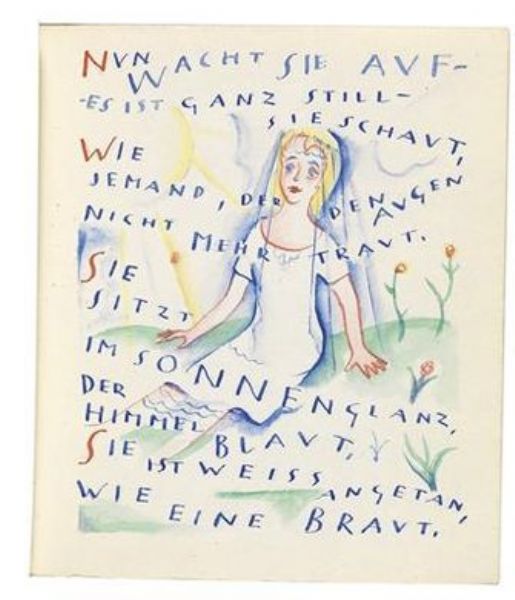 NUN WACHT SIE AUF-
-ES IST GANZ STILL-
SIE SCHAUT,
WIE
JEMAND, DER DEN AUGEN
NICHT MEHR TRAUT.
SIE
SITZT
IM SONNENGLANZ,
DER
HIMMEL BLAUT,
SIE IST WEISS ANGETAN,
WIE EINE BRAUT.